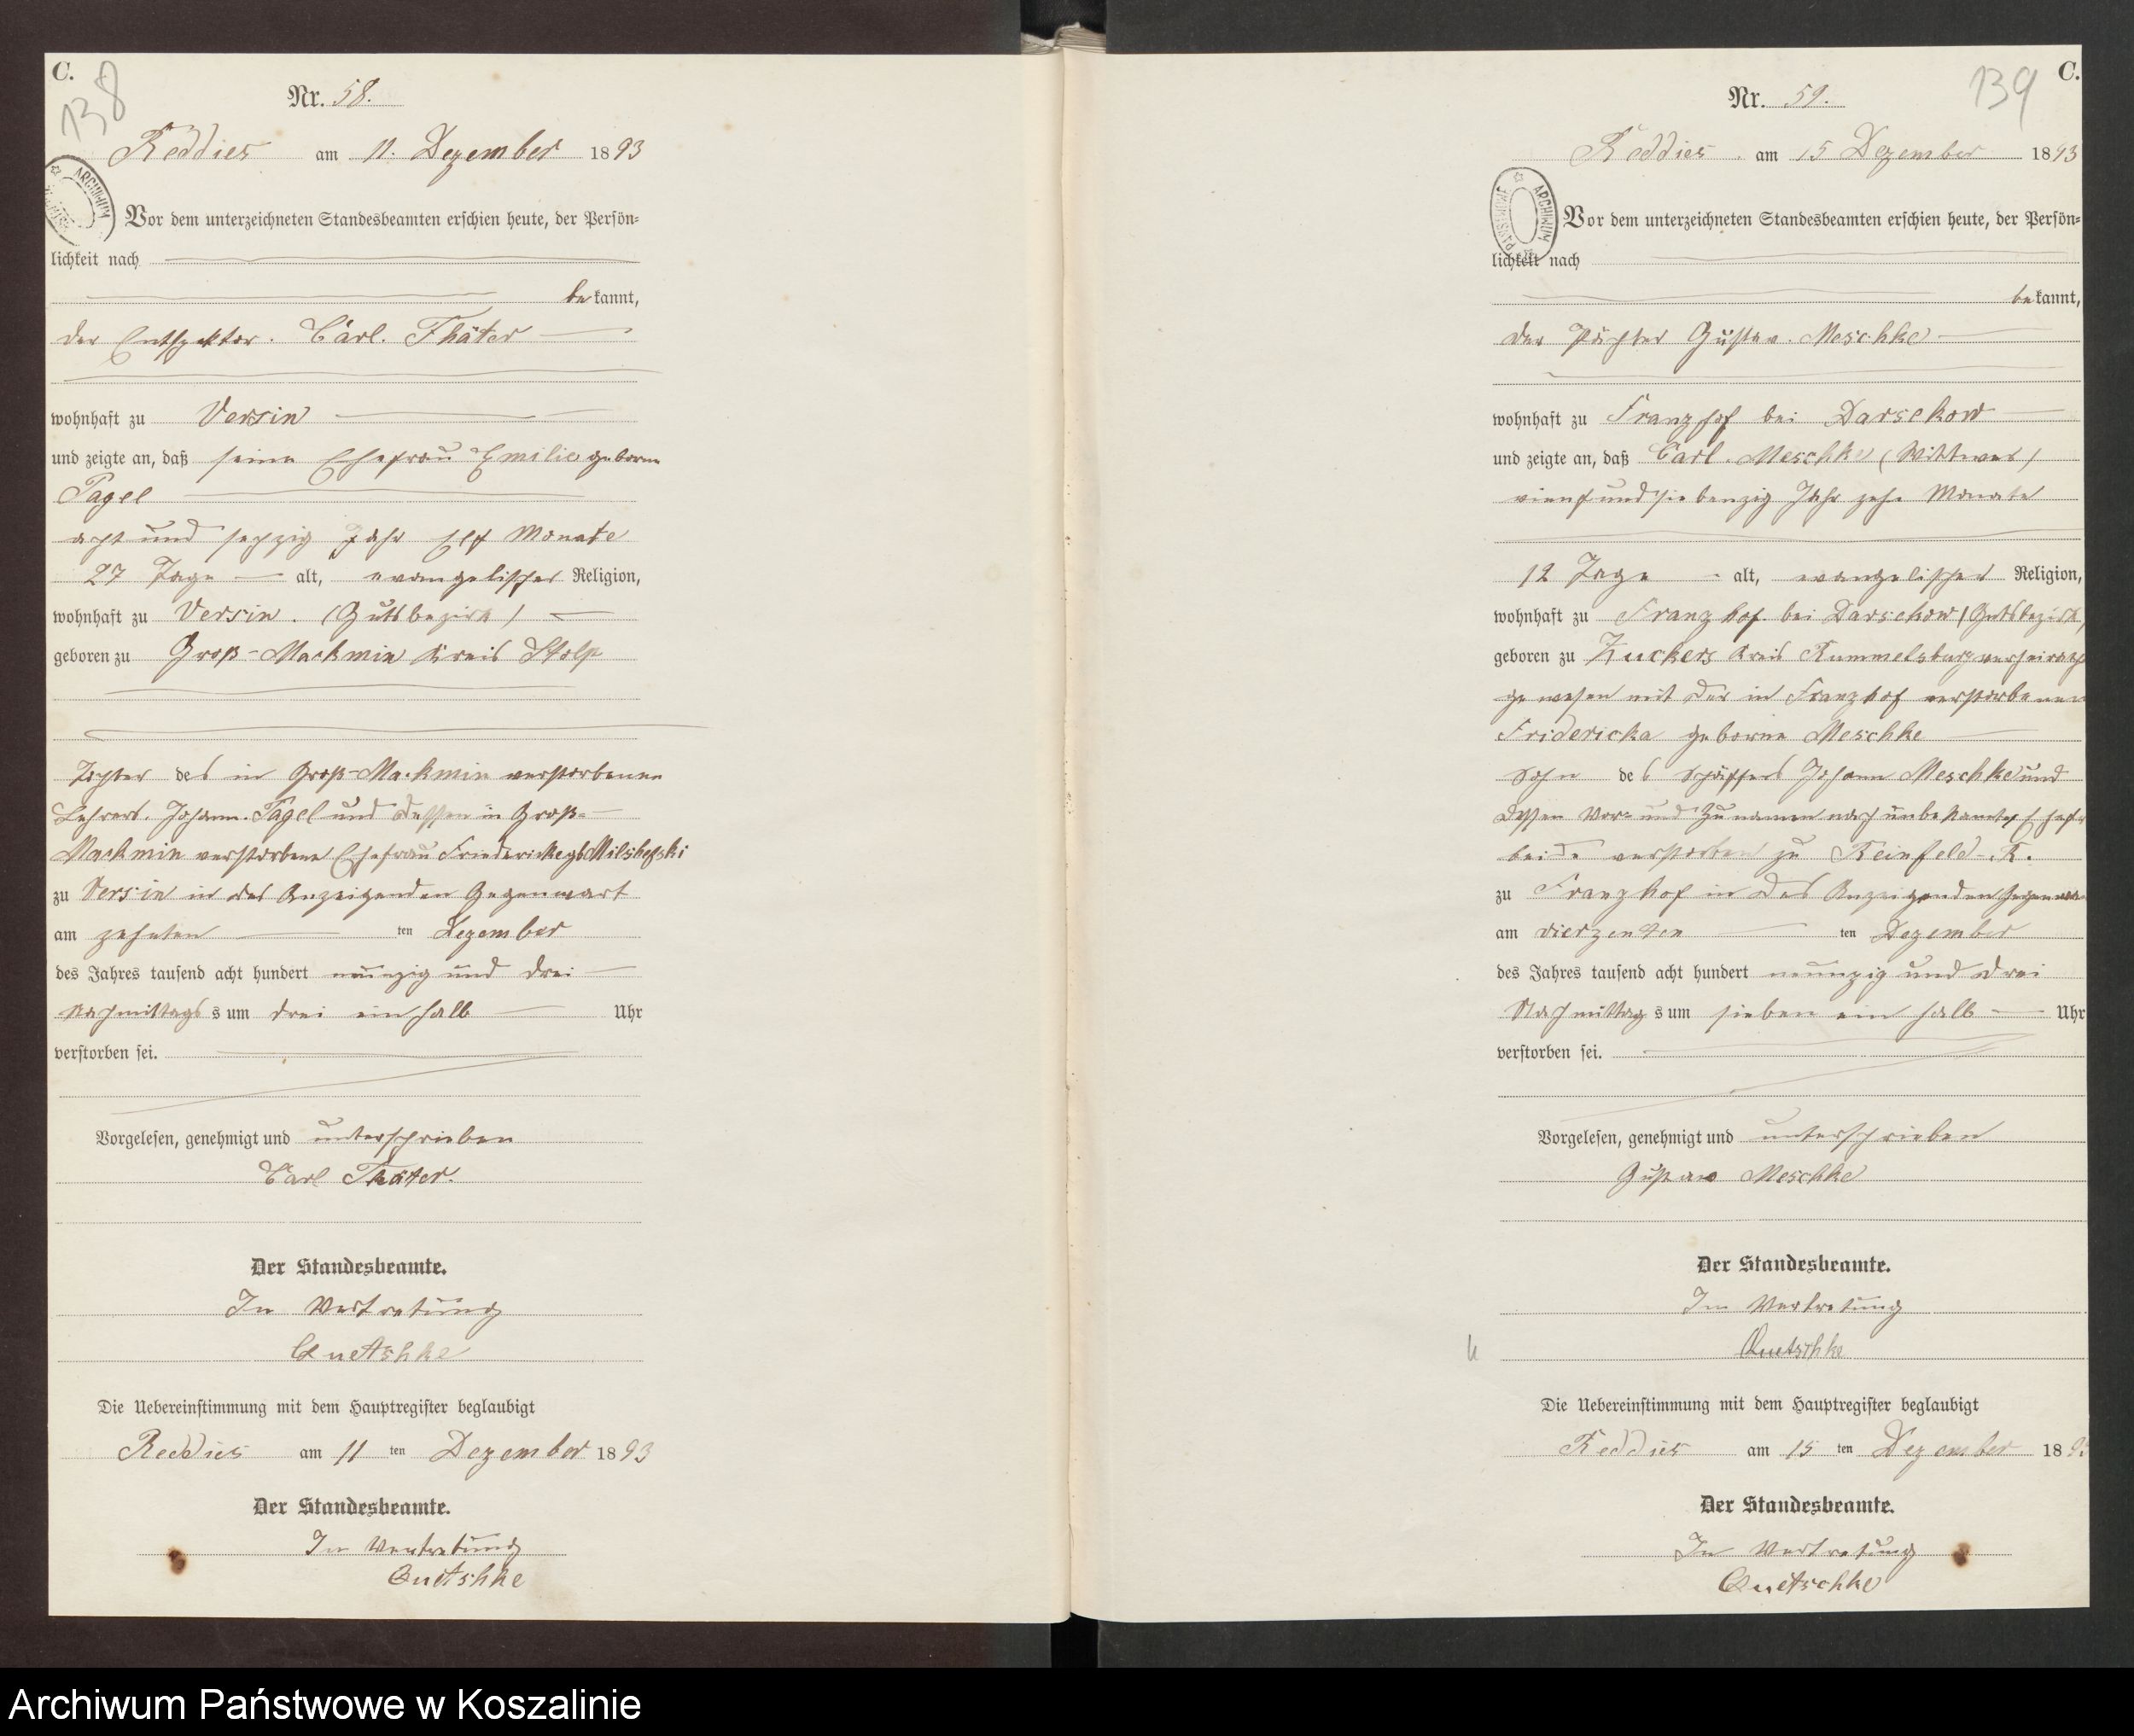 C.
138
Nr. 58.
Reddies am 11. Dezember 1893
Vor dem unterzeichneten Standesbeamten erschien heute, der Persön-
lichkeit nach
bekannt,
der Entspektor. Carl. Thäter
wohnhaft zu Versin
und zeigte an, daß seine Ehefrau Emilie geborne
Pagel
acht und sechzig Jahr elf Monate
27 Tage alt, evangelischer Religion,
wohnhaft zu Versin. (Gutsbezirk)
geboren zu Groß-Machmin Kreis Stolp
Tochter des in Groß-Machmin verstorbenen
Lehrers. Johann. Pagel und dessen in Groß-
Machmin verstorbene Ehefrau Friedericke gb
zu Versin in des Anzeigenden Gegenwart
am zehnten ten Dezember
des Jahres tausend acht hundert neunzig und drei
Nachmittags um drei ein halb Uhr
verstorben sei.
Vorgelesen, genehmigt und unterschrieben
Carl Thäter.
Der Standesbeamte.
In Vertretung
Quetshke
Die Uebereinstimmung mit dem Hauptregister beglaubigt
Reddies am 11 ten Dezember 1893
Der Standesbeamte.
In Vertretung
Quetshke
139
C.
Nr. 59.
Reddies am 15 Dezember 1893
ARCHIWUM PAŃSTWOWE
Vor dem unterzeichneten Standesbeamten erschien heute, der Persön-
lichkeit nach
bekannt,
der Pächter Gustav. Meschke
wohnhaft zu Franzhof bei Darsekow
und zeigte an, daß Carl. Meschke (Wittwer)
vierundsiebenzig Jahr zehn Monate
12 Tage alt, evangelischer Religion,
wohnhaft zu Franzhof bei Darsekow (Gutsbezirk)
geboren zu Zuckers Kreis Rummelsburg verheirath
gewesen mit der in Franzhof verstorbenen
Fridericka geborne Meschke
Sohn des Schäffers Johann Meschke und
dessen Vor- und Zunamen nach unbekannte Ehefr
beide verstorben zu Reinfeld-R.
zu Franzhof in des Anzeigenden Gegenwa
am vierzenten ten Dezember
des Jahres tausend acht hundert neunzig und drei
Nachmittags um sieben ein halb Uhr
verstorben sei.
Vorgelesen, genehmigt und unterschrieben
Gustav Meschke
Der Standesbeamte.
In Vertretung
Quetschke
Die Uebereinstimmung mit dem Hauptregister beglaubigt
Reddies am 15 ten Dezember 1893
Der Standesbeamte.
In Vertretung
Quetschke
Archiwum Państwowe w Koszalinie